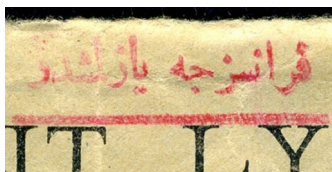 فرانسزجه يازلمشدر
IT LY